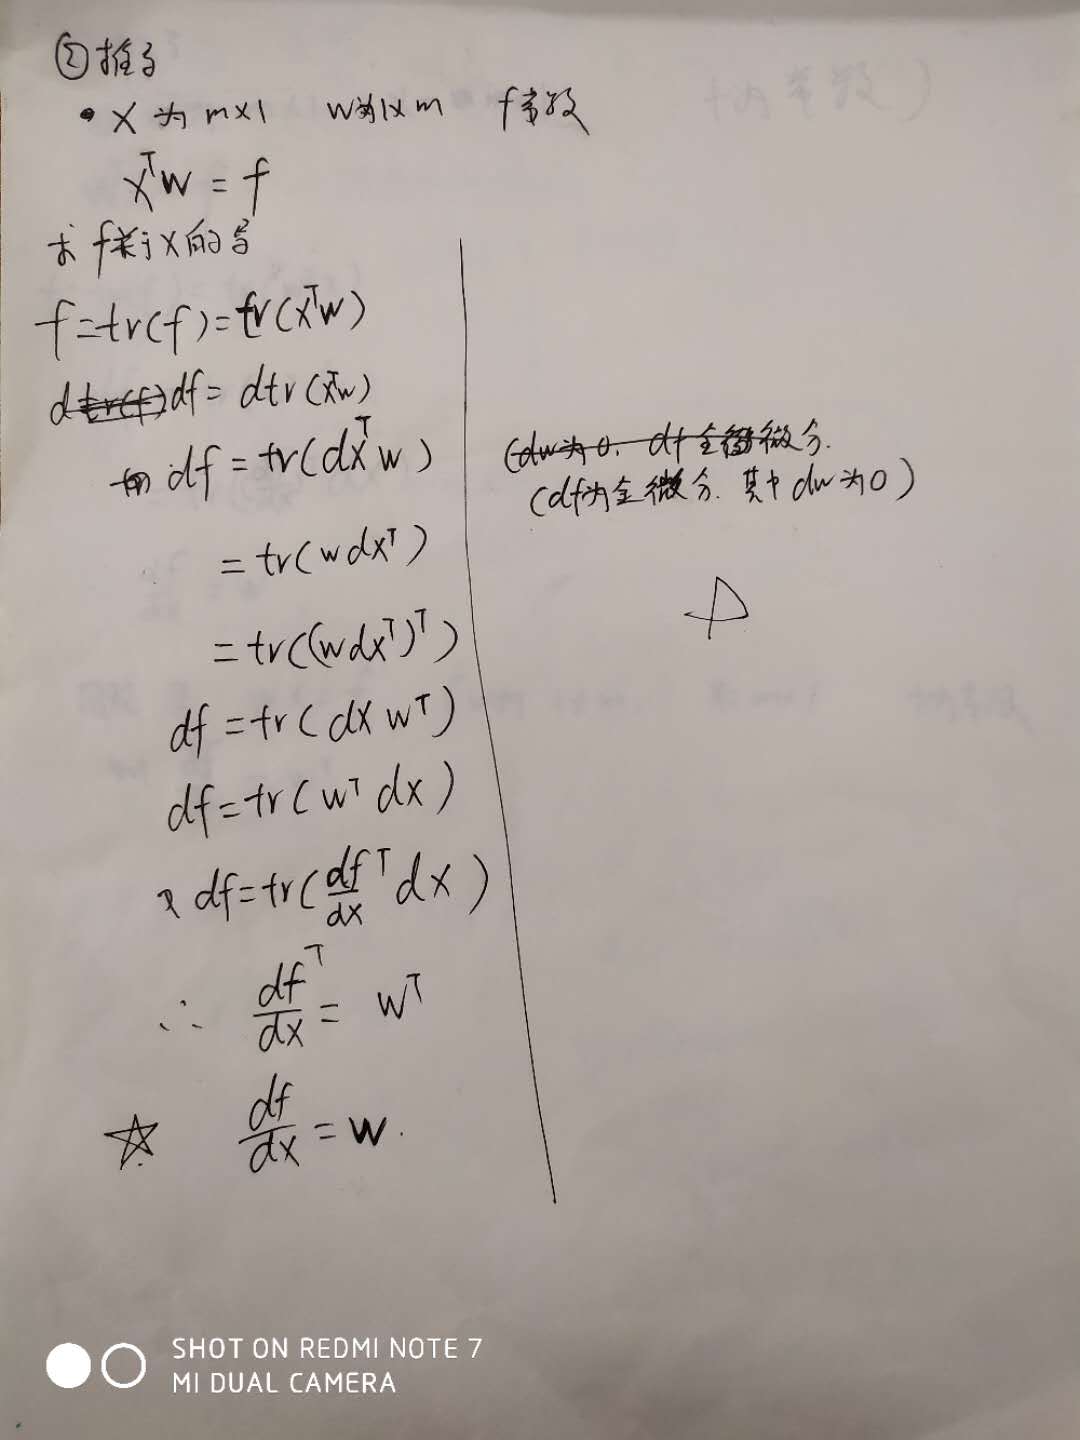 ② 推导
· X 为 m×1 W为1×m f常数
X^T W = f
求 f关于X的导
f=tr(f)=tr(X^T W)
df= dtr(X^T W)
df = tr(dX^T W)
(dw为0. df全微分.
(df为全微分. 其中 dw为0)
= tr(W dX^T)
= tr((W dX^T)^T)
df = tr(dX W^T)
df = tr(W^T dX)
又 df=tr(df/dX^T dX)
∴ df/dX^T = W^T
☆ df/dX = W.
SHOT ON REDMI NOTE 7
MI DUAL CAMERA